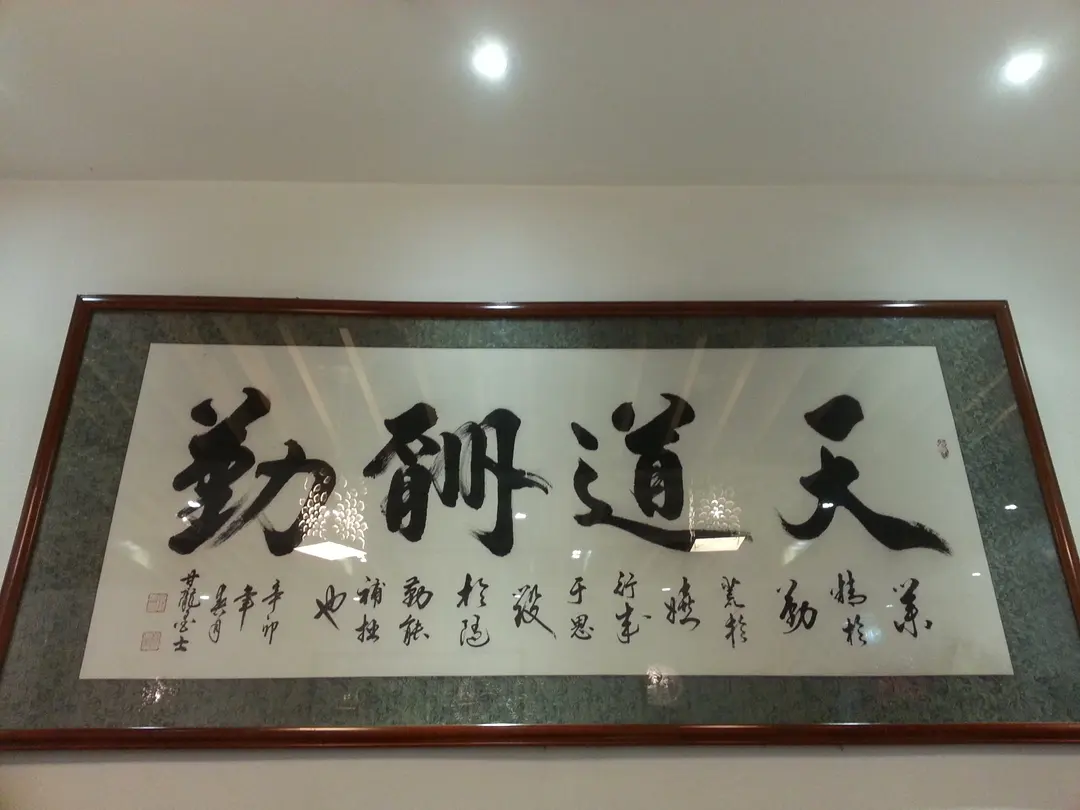 天道酬勤
業
精於
勤
荒於
嬉
行成
于思
毀
於随
勤能
補拙
也
辛卯
年
夏月